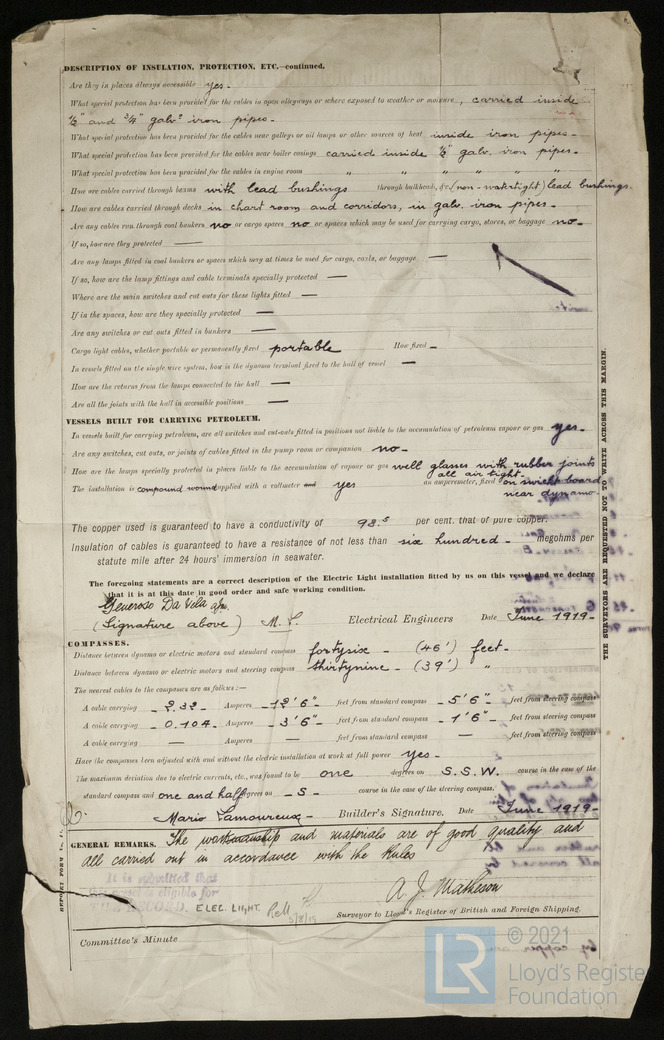 DESCRIPTION OF INSULATION, PROTECTION, ETC.—continued.
Are they in places always accessible yes -
What special protection has been provided for the cables in open alleyways or where exposed to weather or moisture, carried inside
½" and ¾" galvd iron pipes -
What special protection has been provided for the cables near galleys or oil lamps or other sources of heat inside iron pipes -
What special protection has been provided for the cables near boiler casings carried inside ½" galv. iron pipes -
What special protection has been provided for the cables in engine room " " " " " "
How are cables carried through beams with lead bushings through bulkheads, &c. (non-watertight) lead bushings.
How are cables carried through decks in chart room and corridors, in galv. iron pipes -
Are any cables run through coal bunkers no or cargo spaces no or spaces which may be used for carrying cargo, stores, or baggage no -
If so, how are they protected —
Are any lamps fitted in coal bunkers or spaces which may at times be used for cargo, coals, or baggage —
If so, how are the lamp fittings and cable terminals specially protected —
Where are the main switches and cut outs for these lights fitted —
If in the spaces, how are they specially protected —
Are any switches or cut outs fitted in bunkers —
Cargo light cables, whether portable or permanently fixed portable How fixed -
In vessels fitted on the single wire system, how is the dynamo terminal fixed to the hull of vessel —
How are the returns from the lamps connected to the hull —
Are all the joints with the hull in accessible positions —
VESSELS BUILT FOR CARRYING PETROLEUM.
In vessels built for carrying petroleum, are all switches and cut-outs fitted in positions not liable to the accumulation of petroleum vapour or gas yes -
Are any switches, cut outs, or joints of cables fitted in the pump room or companion no -
How are the lamps specially protected in places liable to the accumulation of vapour or gas well glasses with rubber joints
all air tight
The installation is compound wound supplied with a voltmeter and yes an amperemeter, fixed on switch board
near dynamo -
The copper used is guaranteed to have a conductivity of 98.5 per cent. that of pure copper.
Insulation of cables is guaranteed to have a resistance of not less than six hundred - megohms per
statute mile after 24 hours' immersion in seawater.
The foregoing statements are a correct description of the Electric Light installation fitted by us on this vessel and we declare
that it is at this date in good order and safe working condition.
Generoso Da Vela
(Signature above) Electrical Engineers Date June 1919 -
COMPASSES.
Distance between dynamo or electric motors and standard compass fortysix - (46') feet -
Distance between dynamo or electric motors and steering compass thirtynine - (39') "
The nearest cables to the compasses are as follows:—
A cable carrying - 2.32 - Amperes - 12'6" - feet from standard compass - 5'6" - feet from steering compass
A cable carrying - 0.104 - Amperes - 3'6" - feet from standard compass - 1'6" - feet from steering compass
A cable carrying — Amperes — feet from standard compass — feet from steering compass
Have the compasses been adjusted with and without the electric installation at work at full power yes -
The maximum deviation due to electric currents, etc., was found to be one degrees on S.S.W. course in the case of the
standard compass and one and half degrees on - S - course in the case of the steering compass.
Mario Lamoureux - Builder's Signature. Date June 1919 -
GENERAL REMARKS. The workmanship and materials are of good quality and
all carried out in accordance with the Rules
It is submitted that
this vessel is eligible for
THE RECORD. ELEC. LIGHT. 5/8/19
A. J. Matheson
Surveyor to Lloyd's Register of British and Foreign Shipping.
Committee's Minute
THE SURVEYORS ARE REQUESTED NOT TO WRITE ACROSS THIS MARGIN.
© 2021
Lloyd's Register
Foundation